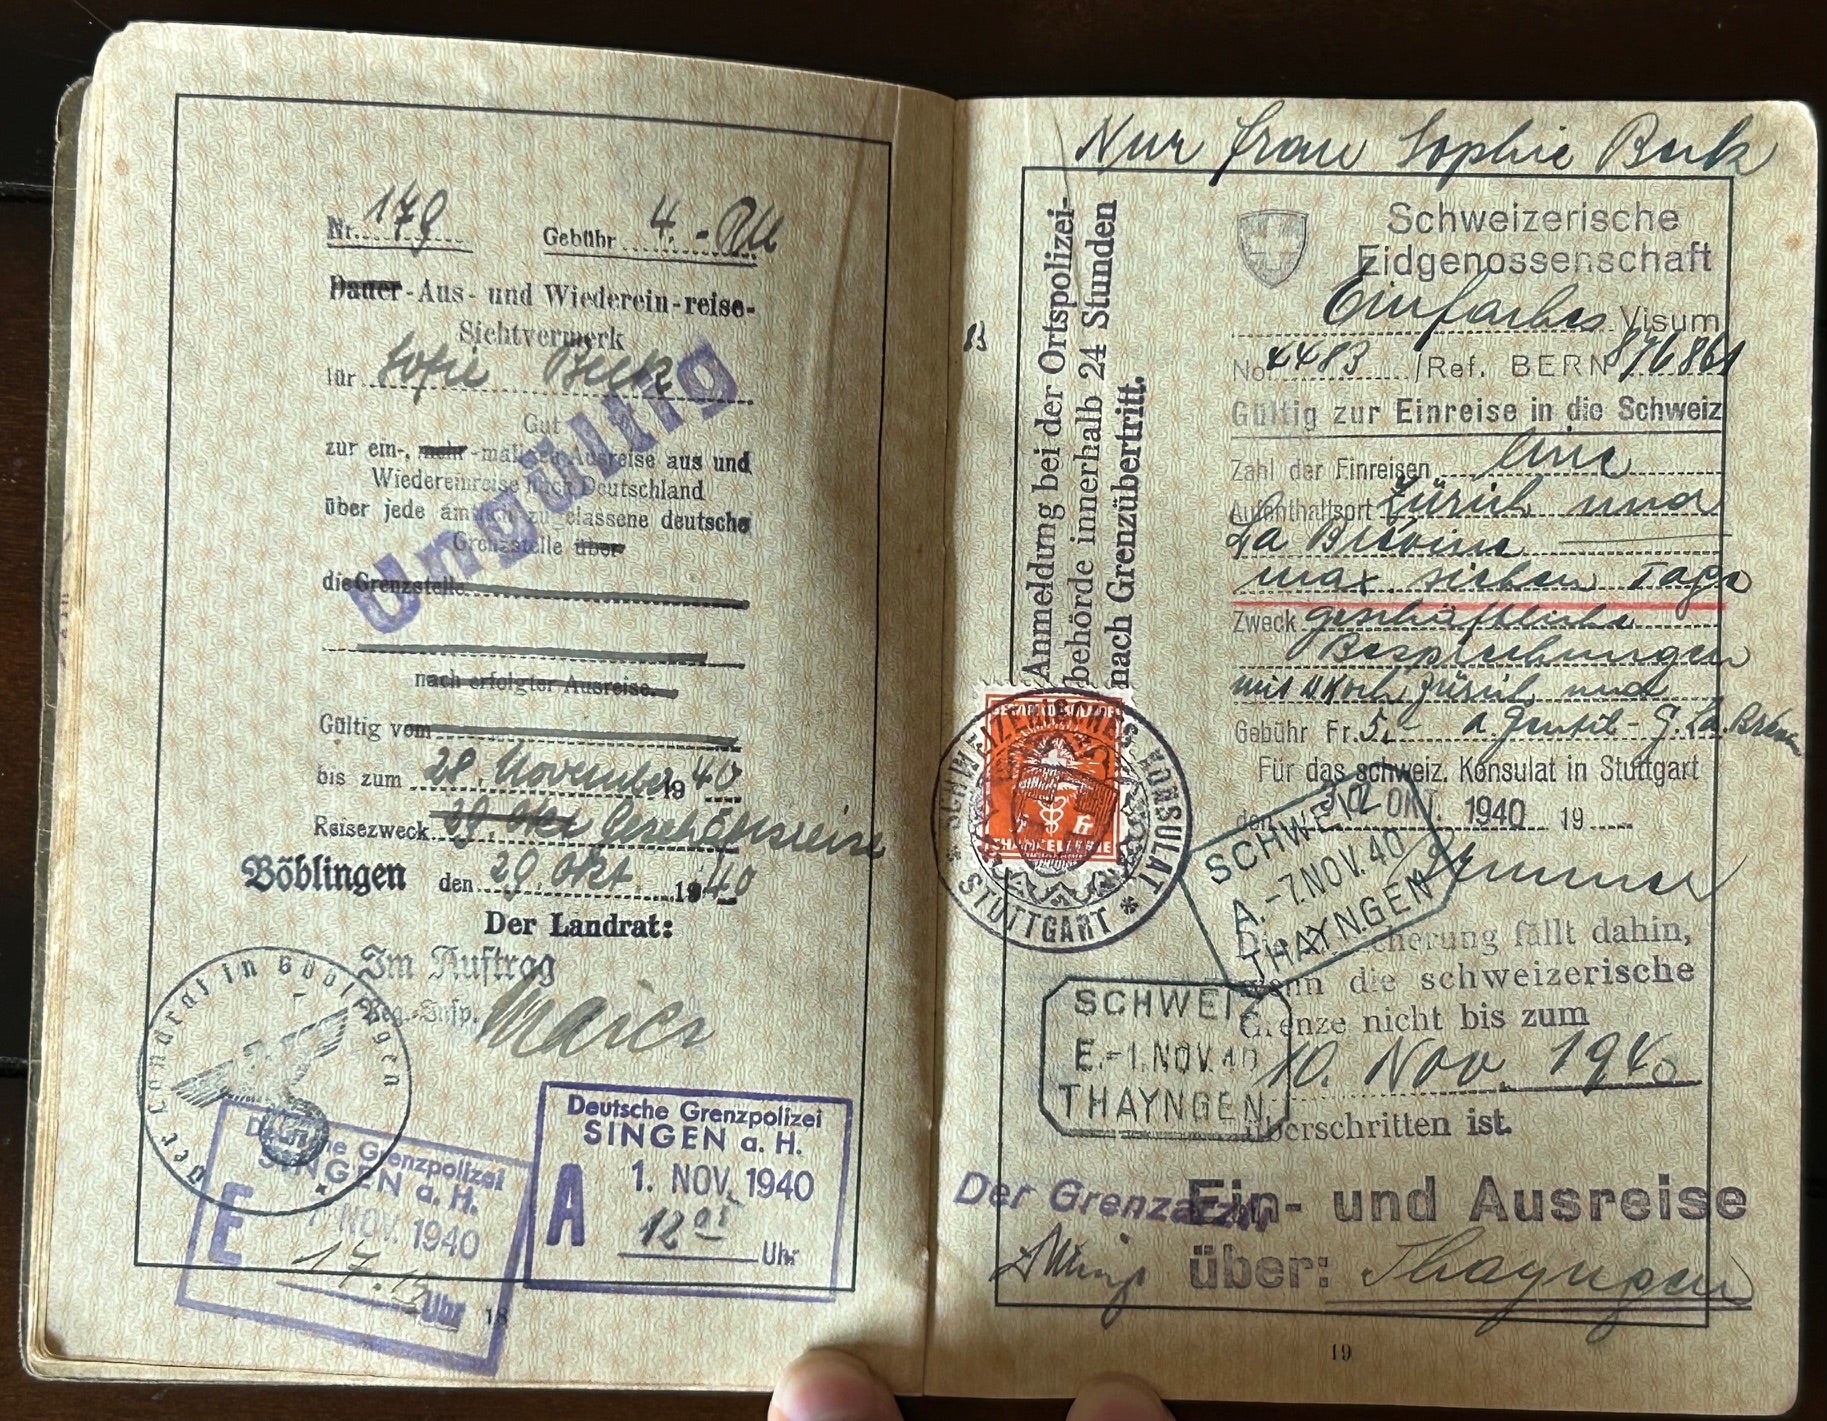 Nr. 179 Gebühr 4.- RM
Dauer-Aus- und Wiederein-reise-
Sichtvermerk
für Sofie Beck
Gut
zur ein-, mehr-maligen Ausreise aus und
Wiedereinreise nach Deutschland
über jede amtlich zugelassene deutsche
Grenzstelle über
die Grenzstelle
nach erfolgter Ausreise.
Ungültig
Gültig vom
bis zum 28. November 1940
Reisezweck 29. Okt. Geschäftsreise
Böblingen den 29. Okt. 1940
Der Landrat:
Im Auftrag
Reg.-Insp. Maier
Der Landrat in Böblingen
Deutsche Grenzpolizei
SINGEN a. H.
E 7. NOV. 1940
17.15 Uhr
Deutsche Grenzpolizei
SINGEN a. H.
A 1. NOV. 1940
12 05 Uhr
18
Nur Frau Sophie Beck
83
Anmeldung bei der Ortspolizei-
behörde innerhalb 24 Stunden
nach Grenzübertritt.
Schweizerische
Eidgenossenschaft
Einfaches Visum
No. 4483 /Ref. BERN 876861
Gültig zur Einreise in die Schweiz
Zahl der Einreisen eine
Aufenthaltsort Zürich und
La Brévine
max. sieben Tage
Zweck geschäftliche
Besprechungen
mit Koch Zürich und
Gebühr Fr. 5.- a. Gentil-G. La Brévine
Für das schweiz. Konsulat in Stuttgart
den 30. OKT. 1940 19
SCHWEIZERISCHES KONSULAT
* STUTTGART *
Fr
SCHWEIZ
A.-7.NOV.40
THAYNGEN
Die Zusicherung fällt dahin,
wenn die schweizerische
Grenze nicht bis zum
10. Nov. 1940
überschritten ist.
SCHWEIZ
E.-1.NOV.40
THAYNGEN
Der Grenzarzt
Ein- und Ausreise
über: Thayngen
19